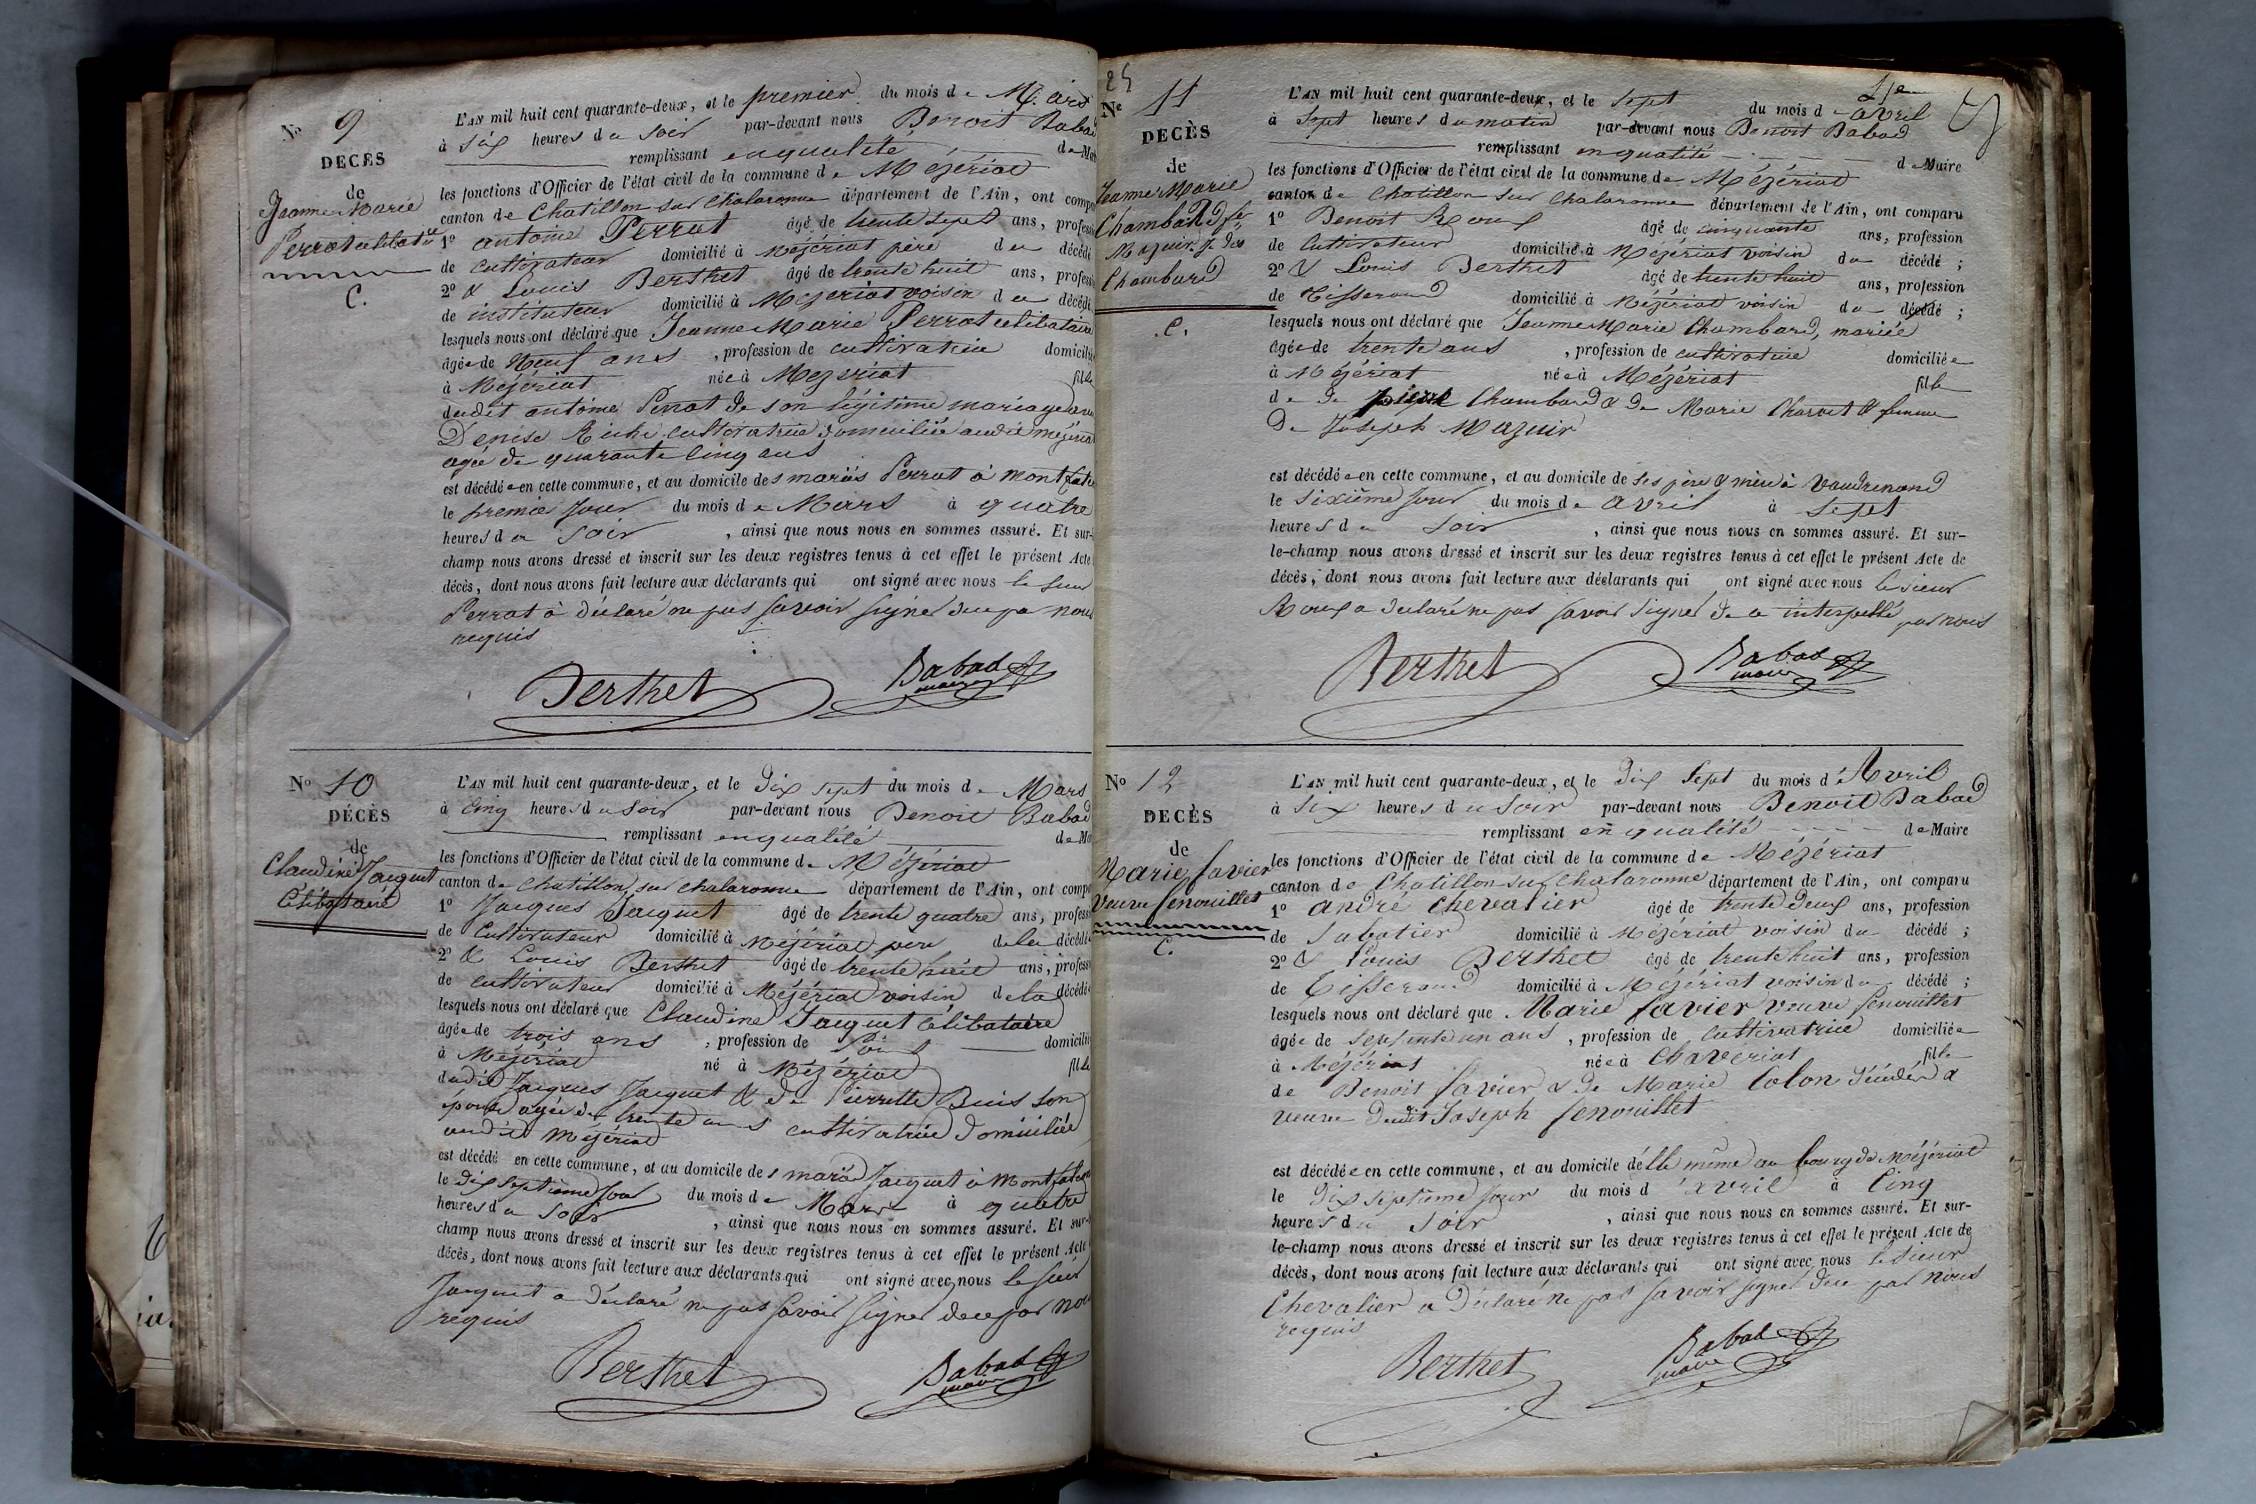 N° 9
DECÈS
de
Jeanne Marie
Perrat célibataire
C.
L'AN mil huit cent quarante-deux, et le premier du mois de Mars
à six heures du soir par-devant nous Benoit Babad
remplissant en qualité de Mai
les fonctions d'Officier de l'état civil de la commune de Mézériat
canton de Chatillon sur Chalaronne département de l'Ain, ont compa
1° antoine Perrat âgé de trente sept ans, professi
de cultivateur domicilié à Mézériat père du décédé
2° & Louis Berthet âgé de trente huit ans, professi
de instituteur domicilié à Mézériat voisin du décédé
lesquels nous ont déclaré que Jeanne Marie Perrat célibataire
âgée de Neuf ans , profession de cultivatrice domicilié
à Mézériat née à Mézériat fille
dudit antoine Perrat de son légitime mariage avec
Denise Riche cultivatrice domiciliée audit mézériat
agée de quarante cinq ans
est décédée en cette commune, et au domicile des mariés Perrat à montfal
le premier jour du mois de Mars à quatre
heures du soir , ainsi que nous nous en sommes assuré. Et sur-
champ nous avons dressé et inscrit sur les deux registres tenus à cet effet le présent Acte
décès, dont nous avons fait lecture aux déclarants qui ont signé avec nous le sieur
Perrat à déclaré ne pas savoir signer de ce par nous
requis
Berthet Babad
maire
N° 10
DÉCÈS
de
Claudine Jacquet
Célibataire
L'AN mil huit cent quarante-deux, et le dix sept du mois de Mars
à cinq heures du soir par-devant nous Benoit Babad
remplissant en qualité de Mai
les fonctions d'Officier de l'état civil de la commune de Mézériat
canton de Chatillon sur Chalaronne département de l'Ain, ont compa
1° Jacques Jacquet âgé de trente quatre ans, professi
de Cultivateur domicilié à Mézériat père de la décédé
2° & Louis Berthet âgé de trente huit ans, professi
de cultivateur domicilié à Mézériat voisin de la décédé
lesquels nous ont déclaré que Claudine Jacquet Célibataire
âgée de trois ans , profession de domicilié
à Mézériat né à Mézériat fille
dudit Jacques Jacquet & de Pierrette Buisson
épouse agée de trente ans cultivatrice domiciliée
audit Mézériat
est décédé en cette commune, et au domicile des mariés Jacquet à Montfal
le dix septième jour du mois de Mars à quatre
heures du soir , ainsi que nous nous en sommes assuré. Et sur-
champ nous avons dressé et inscrit sur les deux registres tenus à cet effet le présent Acte
décès, dont nous avons fait lecture aux déclarants qui ont signé avec nous le sieur
Jacquet a déclaré ne pas savoir signer de ce par nous
requis
Berthet Babad
maire
25
N° 11
DECÈS
de
Jeanne Marie
Chambard fe
Mazuir
Chambard
C.
L'AN mil huit cent quarante-deux, et le sept du mois d avril
à sept heures du matin par-devant nous Benoit Babad
remplissant en qualité de Maire
les fonctions d'Officier de l'état civil de la commune de Mézériat
canton de Chatillon sur Chalaronne département de l'Ain, ont comparu
1° Benoit Roux âgé de cinquante ans, profession
de Cultivateur domicilié à Mézériat voisin du décédé ;
2° & Louis Berthet âgé de trente huit ans, profession
de Tisserand domicilié à Mézériat voisin du décédé ;
lesquels nous ont déclaré que Jeanne Marie Chambard, mariée
âgée de trente ans , profession de cultivatrice domiciliée
à Mézériat née à Mézériat fille
de de Chambard & de Marie Charvet & femme
De Joseph Mazuir
est décédée en cette commune, et au domicile de ses père & mère à Vaudrenand
le sixième jour du mois de avril à sept
heures du soir , ainsi que nous nous en sommes assuré. Et sur-
le-champ nous avons dressé et inscrit sur les deux registres tenus à cet effet le présent Acte de
décès, dont nous avons fait lecture aux déclarants qui ont signé avec nous le sieur
Roux a déclaré ne pas savoir signer de ce interpellé par nous
Berthet Babad
maire
N° 12
DÉCÈS
de
Marie Savier
Veuve Senouillet
C.
L'AN mil huit cent quarante-deux, et le dix sept du mois d'Avril
à six heures du soir par-devant nous Benoit Babad
remplissant en qualité de Maire
les fonctions d'Officier de l'état civil de la commune de Mézériat
canton de Chatillon sur Chalaronne département de l'Ain, ont comparu
1° andré Chevalier âgé de trente deux ans, profession
de Sabotier domicilié à Mézériat voisin du décédé ;
2° & Louis Berthet âgé de trente huit ans, profession
de Tisserand domicilié à Mézériat voisin du décédé ;
lesquels nous ont déclaré que Marie Savier veuve Senouillet
âgée de septante un ans , profession de cultivatrice domiciliée
à Mézériat née à Chaveriat fille
de Benoit Savier & de Marie Colon décédés &
veuve dudit Joseph Senouillet
est décédée en cette commune, et au domicile d'elle même au bourg de Mézériat
le dix septième jour du mois d'avril à Cinq
heures du soir , ainsi que nous nous en sommes assuré. Et sur-
le-champ nous avons dressé et inscrit sur les deux registres tenus à cet effet le présent Acte de
décès, dont nous avons fait lecture aux déclarants qui ont signé avec nous le sieur
Chevalier a déclaré ne pas savoir signer de ce par nous
requis
Berthet Babad
maire